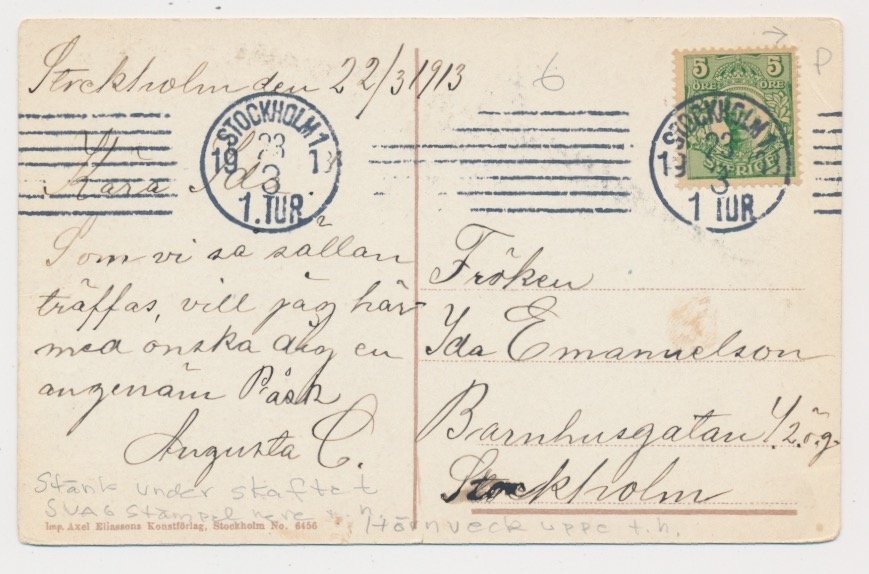 Stockholm den 22/3 1913
Kära Ida.
Som vi så sällan
träffas, vill jag här
med önska dig en
angenäm Påsk
Augusta C.
Stänk under skaftet
SVAG Stämpel nere t.h.
Imp. Axel Eliassons Konstförlag, Stockholm No. 6456
STOCKHOLM 1.
19 23 13
3
1. TUR
6
P
5 5
ÖRE ÖRE
SVERIGE
STOCKHOLM 1.
19 23
3
1 TUR
Fröken
Ida Emanuelson
Barnhusgatan 4 2.ö.g.
Stockholm
Hörnveck uppe t.h.